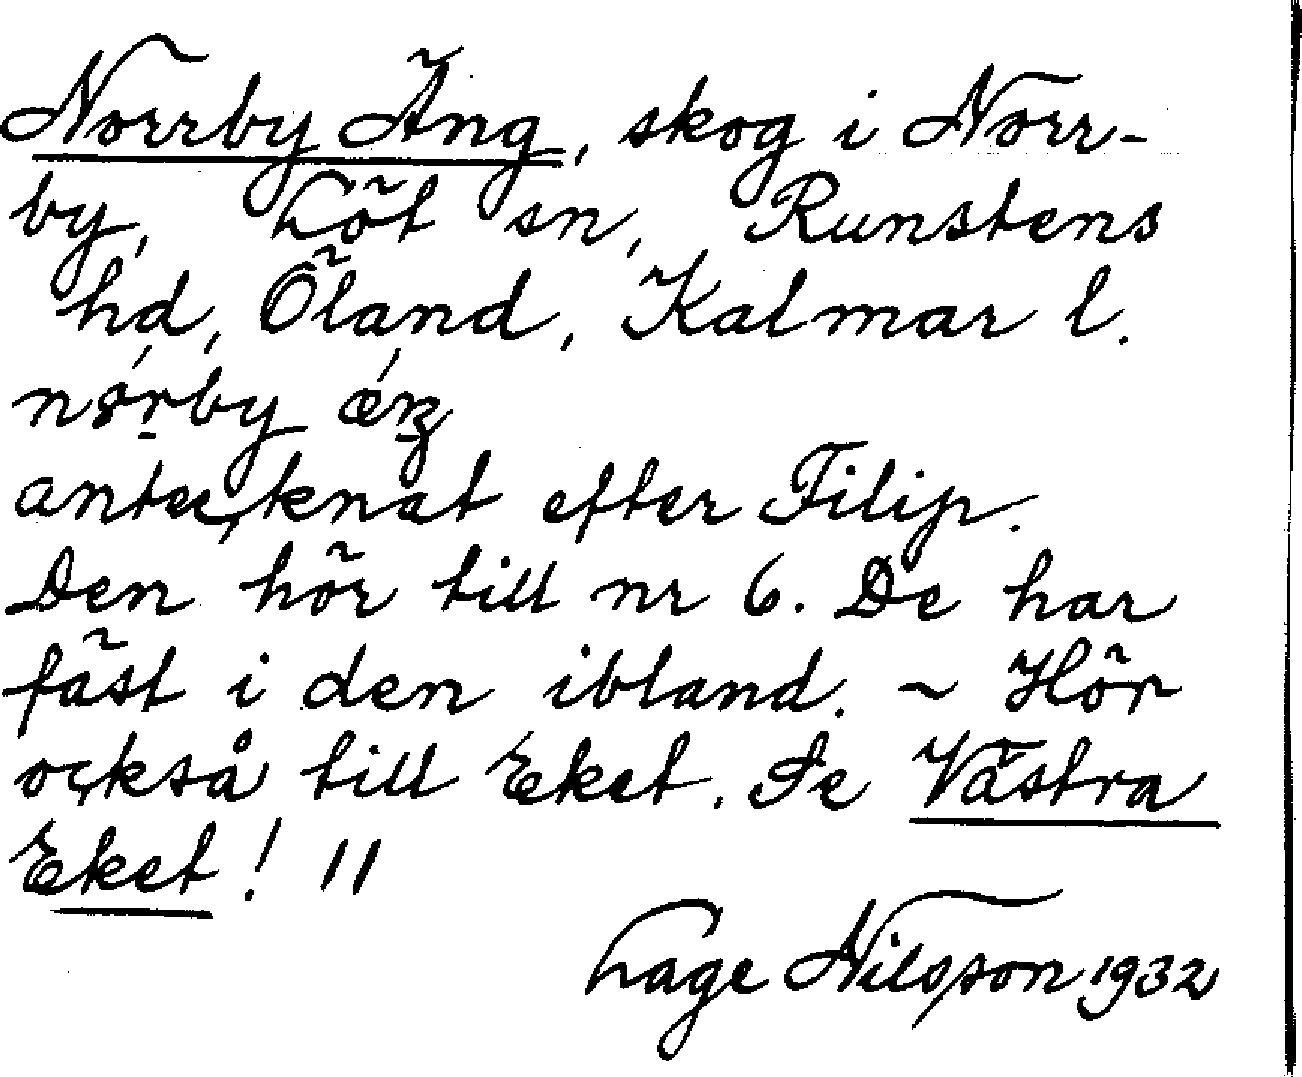 Norrby Äng, skog i Norr-
by, Löt sn, Runstens
hd, Öland, Kalmar l.
antecknat efter Filip.
Den hör till nr 6. De har
fäst i den ibland. ~ Hör
också till Eket. Se Västra
Eket! 11
Lage Nilsson 1932